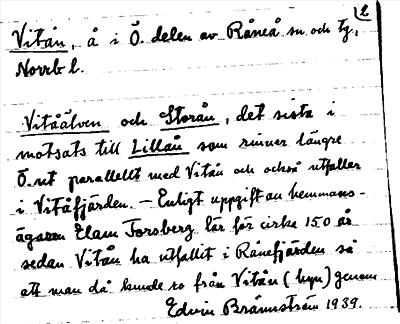 2
Vitån, å i Ö. delen av Råneå sn och tg,
Norrb l.
Vitåälven och Storån, det sista i
motsats till Lillån som rinner längre
Ö. ut parallellt med Vitån och också utfaller
i Vitåfjärden. – Enligt uppgift av hemmans-
ägaren Elam Forsberg lär för cirka 150 år
sedan Vitån ha utfallit i Rånefjärden så
att man då kunde ro från Vitån (byn) genom
Edvin Brännström 1939.